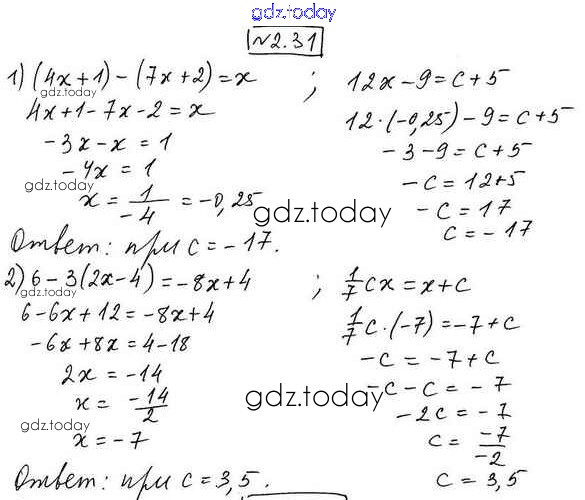 gdz.today
№2.31
1) (4x+1)-(7x+2)=x ;
gdz.today
4x+1-7x-2=x
-3x-x=1
-4x=1
gdz.today
x=1/-4=-0,25
12x-9=c+5
12·(-0,25)-9=c+5
-3-9=c+5
-c=12+5
-c=17
c=-17
gdz.today
Ответ: при c=-17.
2) 6-3(2x-4)=-8x+4 ;
gdz.today
6-6x+12=-8x+4
-6x+8x=4-18
2x=-14
x=-14/2
gdz.today
x=-7
1/7cx=x+c
1/7c·(-7)=-7+c
-c=-7+c
-c-c=-7
gdz.today
-2c=-7
c=-7/-2
c=3,5
Ответ: при c=3,5.